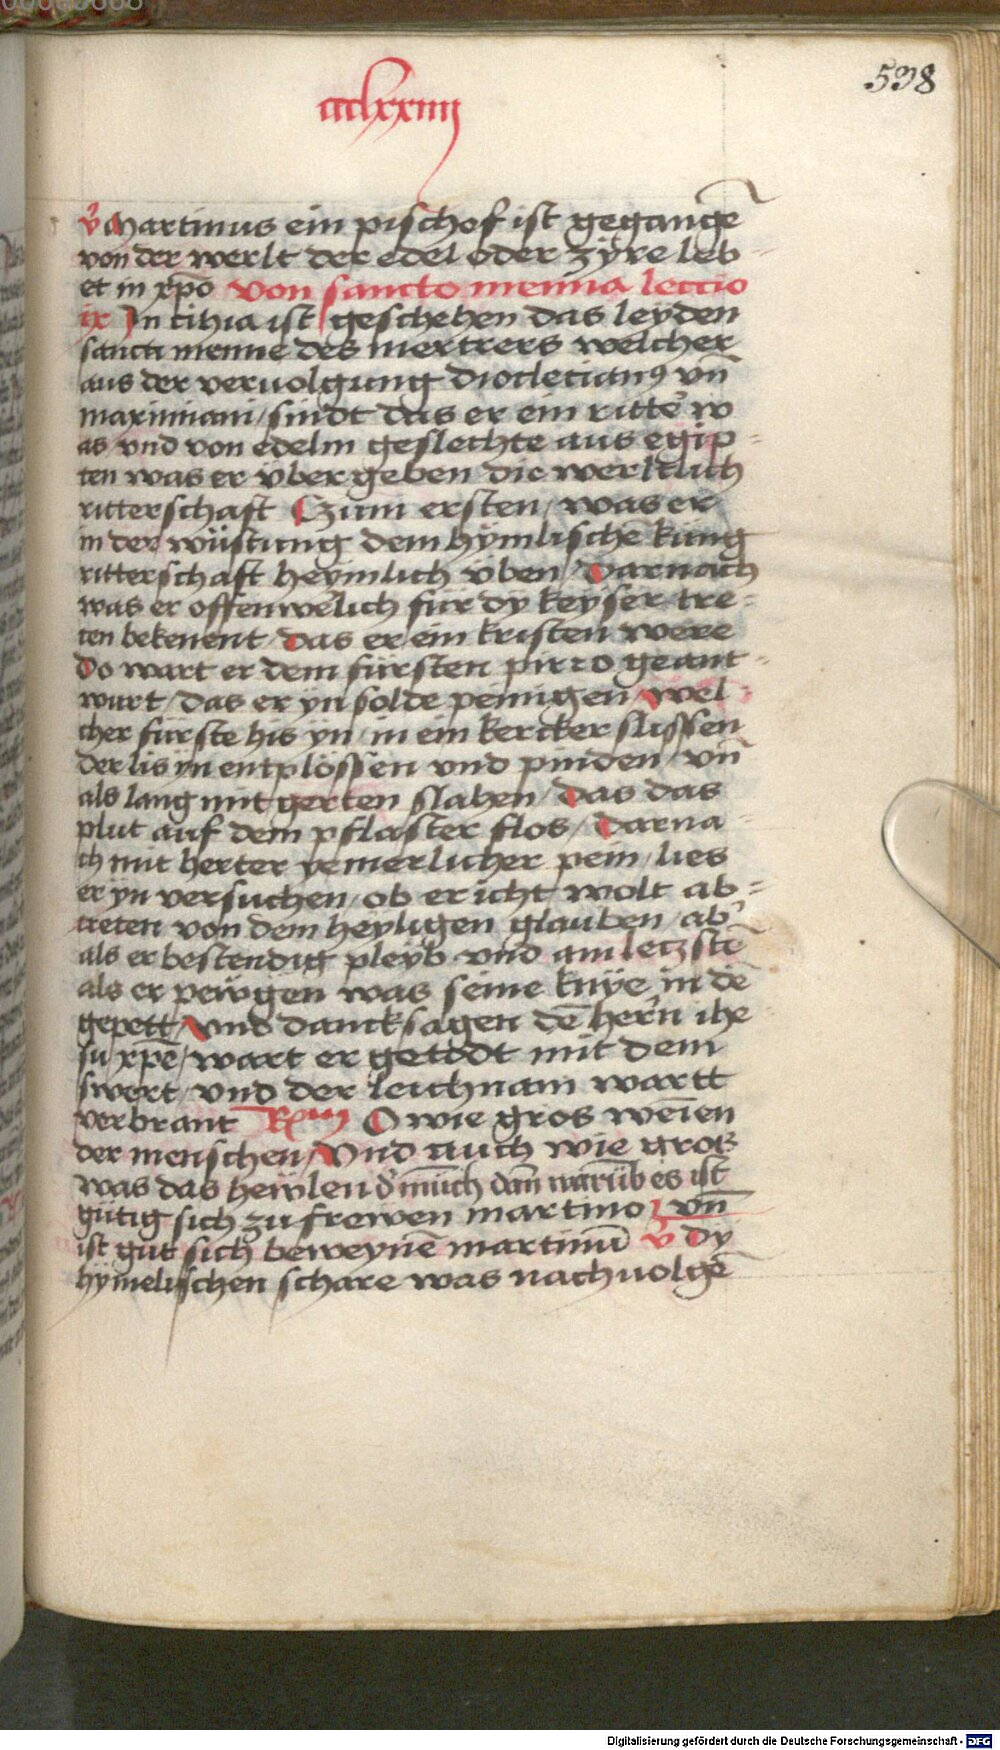 538
ccclxxiiii
v̾ Martinus ein pischof ist gegangē
von der werlt der edel oder zyre leb⸗
et in xp̄o Von sancto menna leccio
ix In cihia ist geschehen das leyden
sancti menne des mertrers welcher
aus der veruolgung diocletianꝯ vn̄
maximiani / sindt das er ein ritte̾ w
as vnd von edelm geslechte aus egip⸗
ten was er vbergeben die werltlich
ritterschaft Czum ersten / was er
in der wüstung dem hymlischē kung
ritterschaft heymlich vben / Darnach
was er offenwelich fur dy keyser tre⸗
ten bekenent das er ein kristen were
Do wart er dem fürsten pirro geant⸗
wurt / das er yn solde peinigen / wel⸗
cher fürste his yn / in ein kercker slissen
der lis yn entplössen vnd pinden / vn̄
als lang mit gerten slahen / das das
plut auf dem pflaster flos / Darna⸗
ch mit herter yemerlicher pein / lies
er yn versuchen / ob er icht wolt ab⸗
treten von dem heyligen glauben / ab̾
als er bestendig pleyb vnd am leczstē
als er pewgen was seine knye in dē
gepett / vnd dancksagen dē hern̄ ihe⸗
su xp̄e / wart er getödt mit dem
swert / vnd der leichnam wartt
verbrant O wie gros weīen
der menschen / Vnd auch wie gros
was das hewlen d̾ münch dan̄ warūb es ist
gütig sich zu frewen martino vn̄
ist gut sich beweynē martinū v̾ Dy
hymelischen schare was nachuolgē
Digitalisierung gefördert durch die Deutsche Forschungsgemeinschaft - DFG